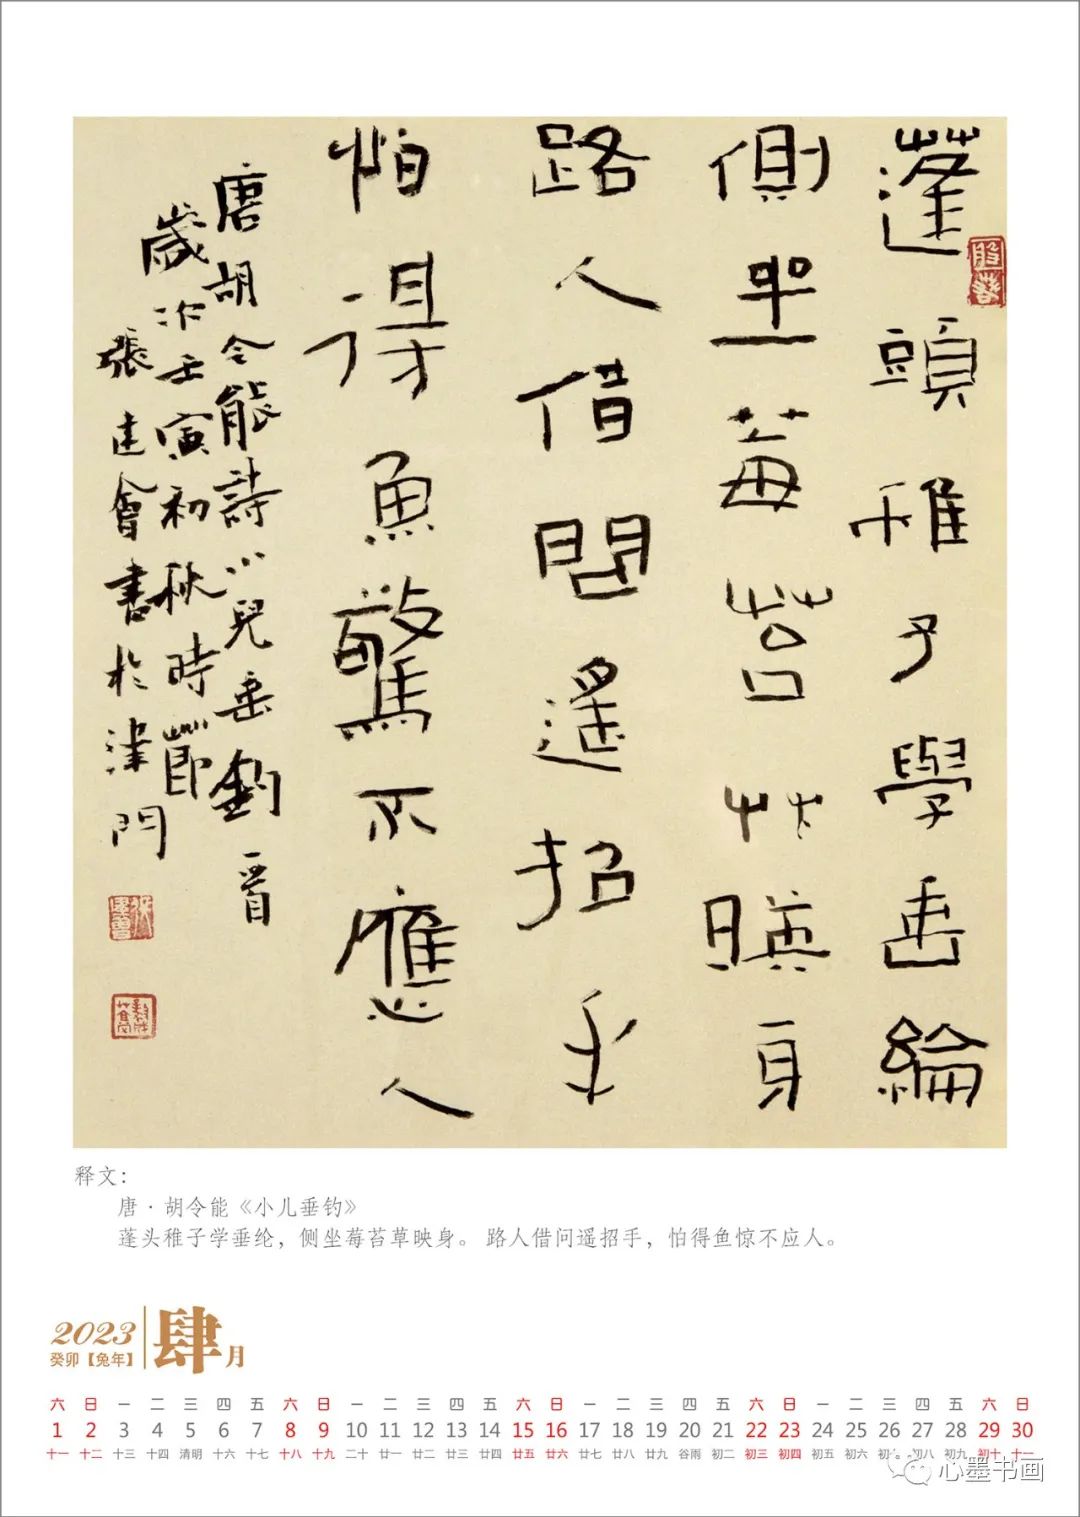 蓬頭稚子學垂綸
側坐莓苔艸暎身
路人借問遥招手
怕得魚驚不應人
唐胡令能詩小兒垂釣一首
歲次壬寅初秋時節
張建會書於津門
释文：
唐·胡令能《小儿垂钓》
蓬头稚子学垂纶，侧坐莓苔草映身。路人借问遥招手，怕得鱼惊不应人。
2023
癸卯【兔年】
肆月
六 日 一 二 三 四 五 六 日 一 二 三 四 五 六 日 一 二 三 四 五 六 日 一 二 三 四 五 六 日
1 2 3 4 5 6 7 8 9 10 11 12 13 14 15 16 17 18 19 20 21 22 23 24 25 26 27 28 29 30
十一 十二 十三 十四 清明 十六 十七 十八 十九 二十 廿一 廿二 廿三 廿四 廿五 廿六 廿七 廿八 廿九 谷雨 初二 初三 初四 初五 初六 初八 初九 初十 十一
心墨书画